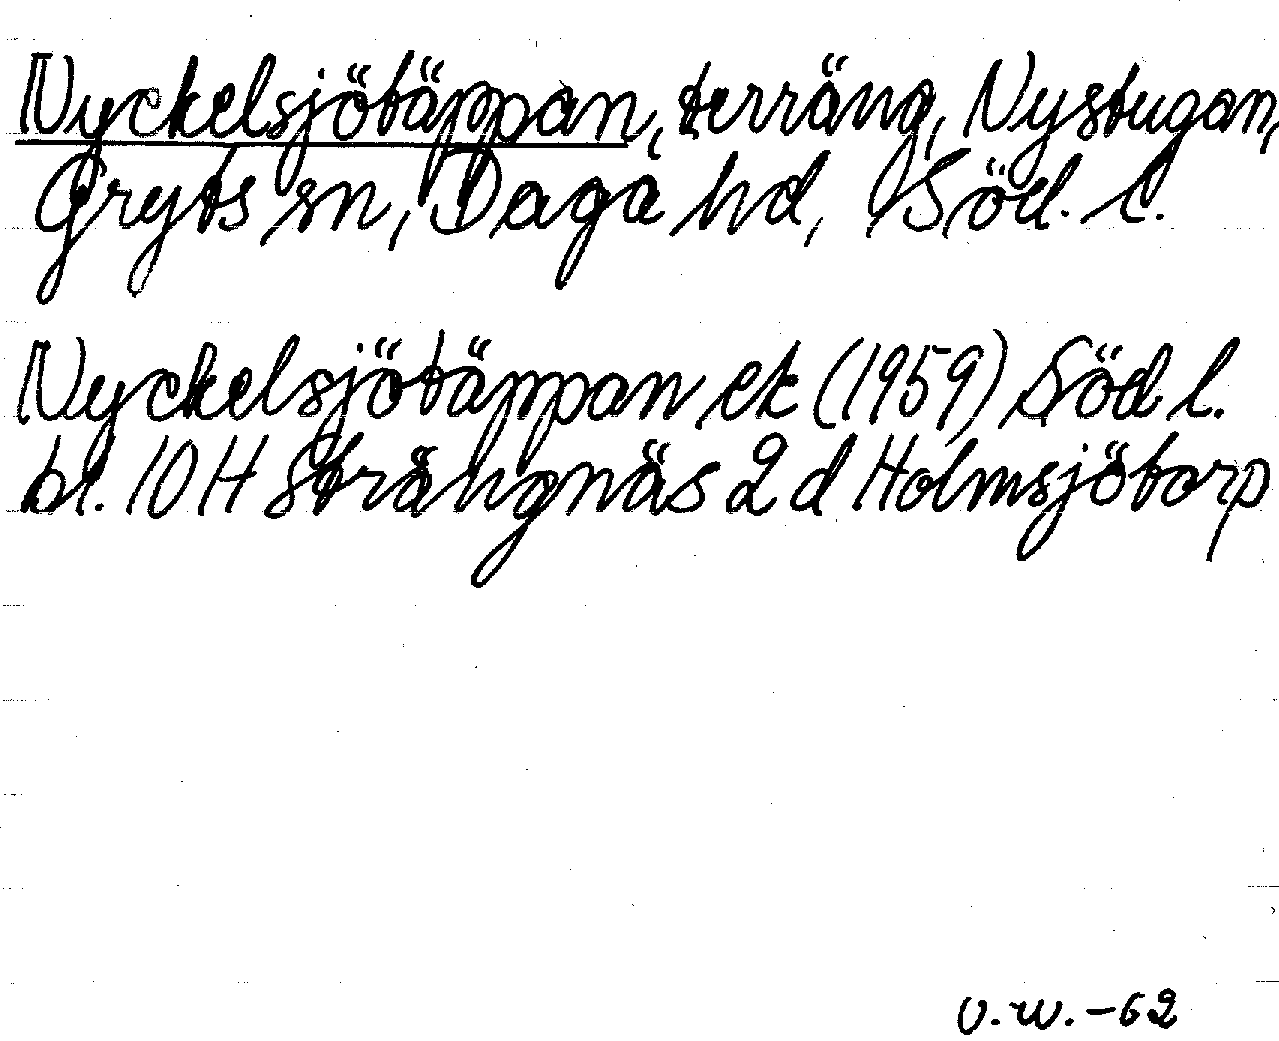 Nyckelsjötäppan, terräng, Nystugan,
Gryts sn, Daga hd, Söd. l.
Nyckelsjötäppan ek (1959) Söd l.
bl. 10 H Strängnäs 2 d Holmsjötorp
v.w.-62